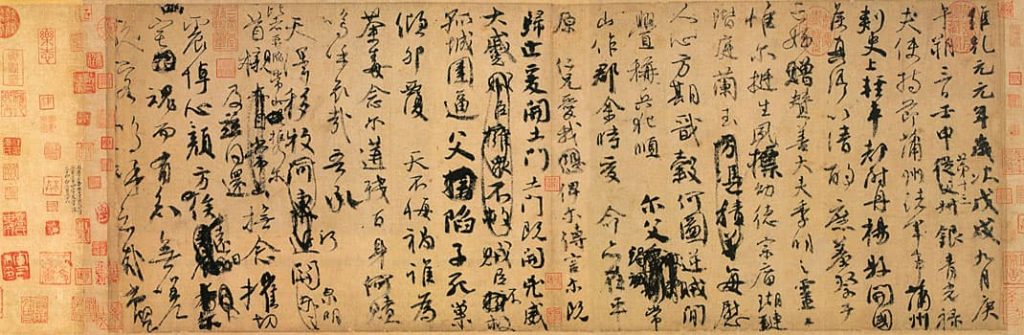 維乾元元年歲次戊戌九月庚
午朔三日壬申第十三叔銀青光祿
夫使持節蒲州諸軍事蒲州
刺史上輕車都尉丹楊縣開國
侯真卿以清酌庶羞祭于
亡姪贈贊善大夫季明之靈
惟爾挺生夙標幼德宗廟瑚璉
階庭蘭玉每慰
人心方期戩穀何圖逆賊閒
舋稱兵犯順爾父竭誠常
山作郡余時受命亦在平
原仁兄愛我俾爾傳言爾既
歸止爰開土門土門既開凶威
大蹙賊臣不救
孤城圍逼父陷子死巢
傾卵覆天不悔禍誰為
荼毒念爾遘殘百身何贖
嗚呼哀哉吾承
天澤移牧河關泉明
比者再陷常山攜爾
首櫬及茲同還撫念摧切
震悼心顏方俟遠日
卜爾幽宅魂而有知無嗟
久客嗚呼哀哉尚饗